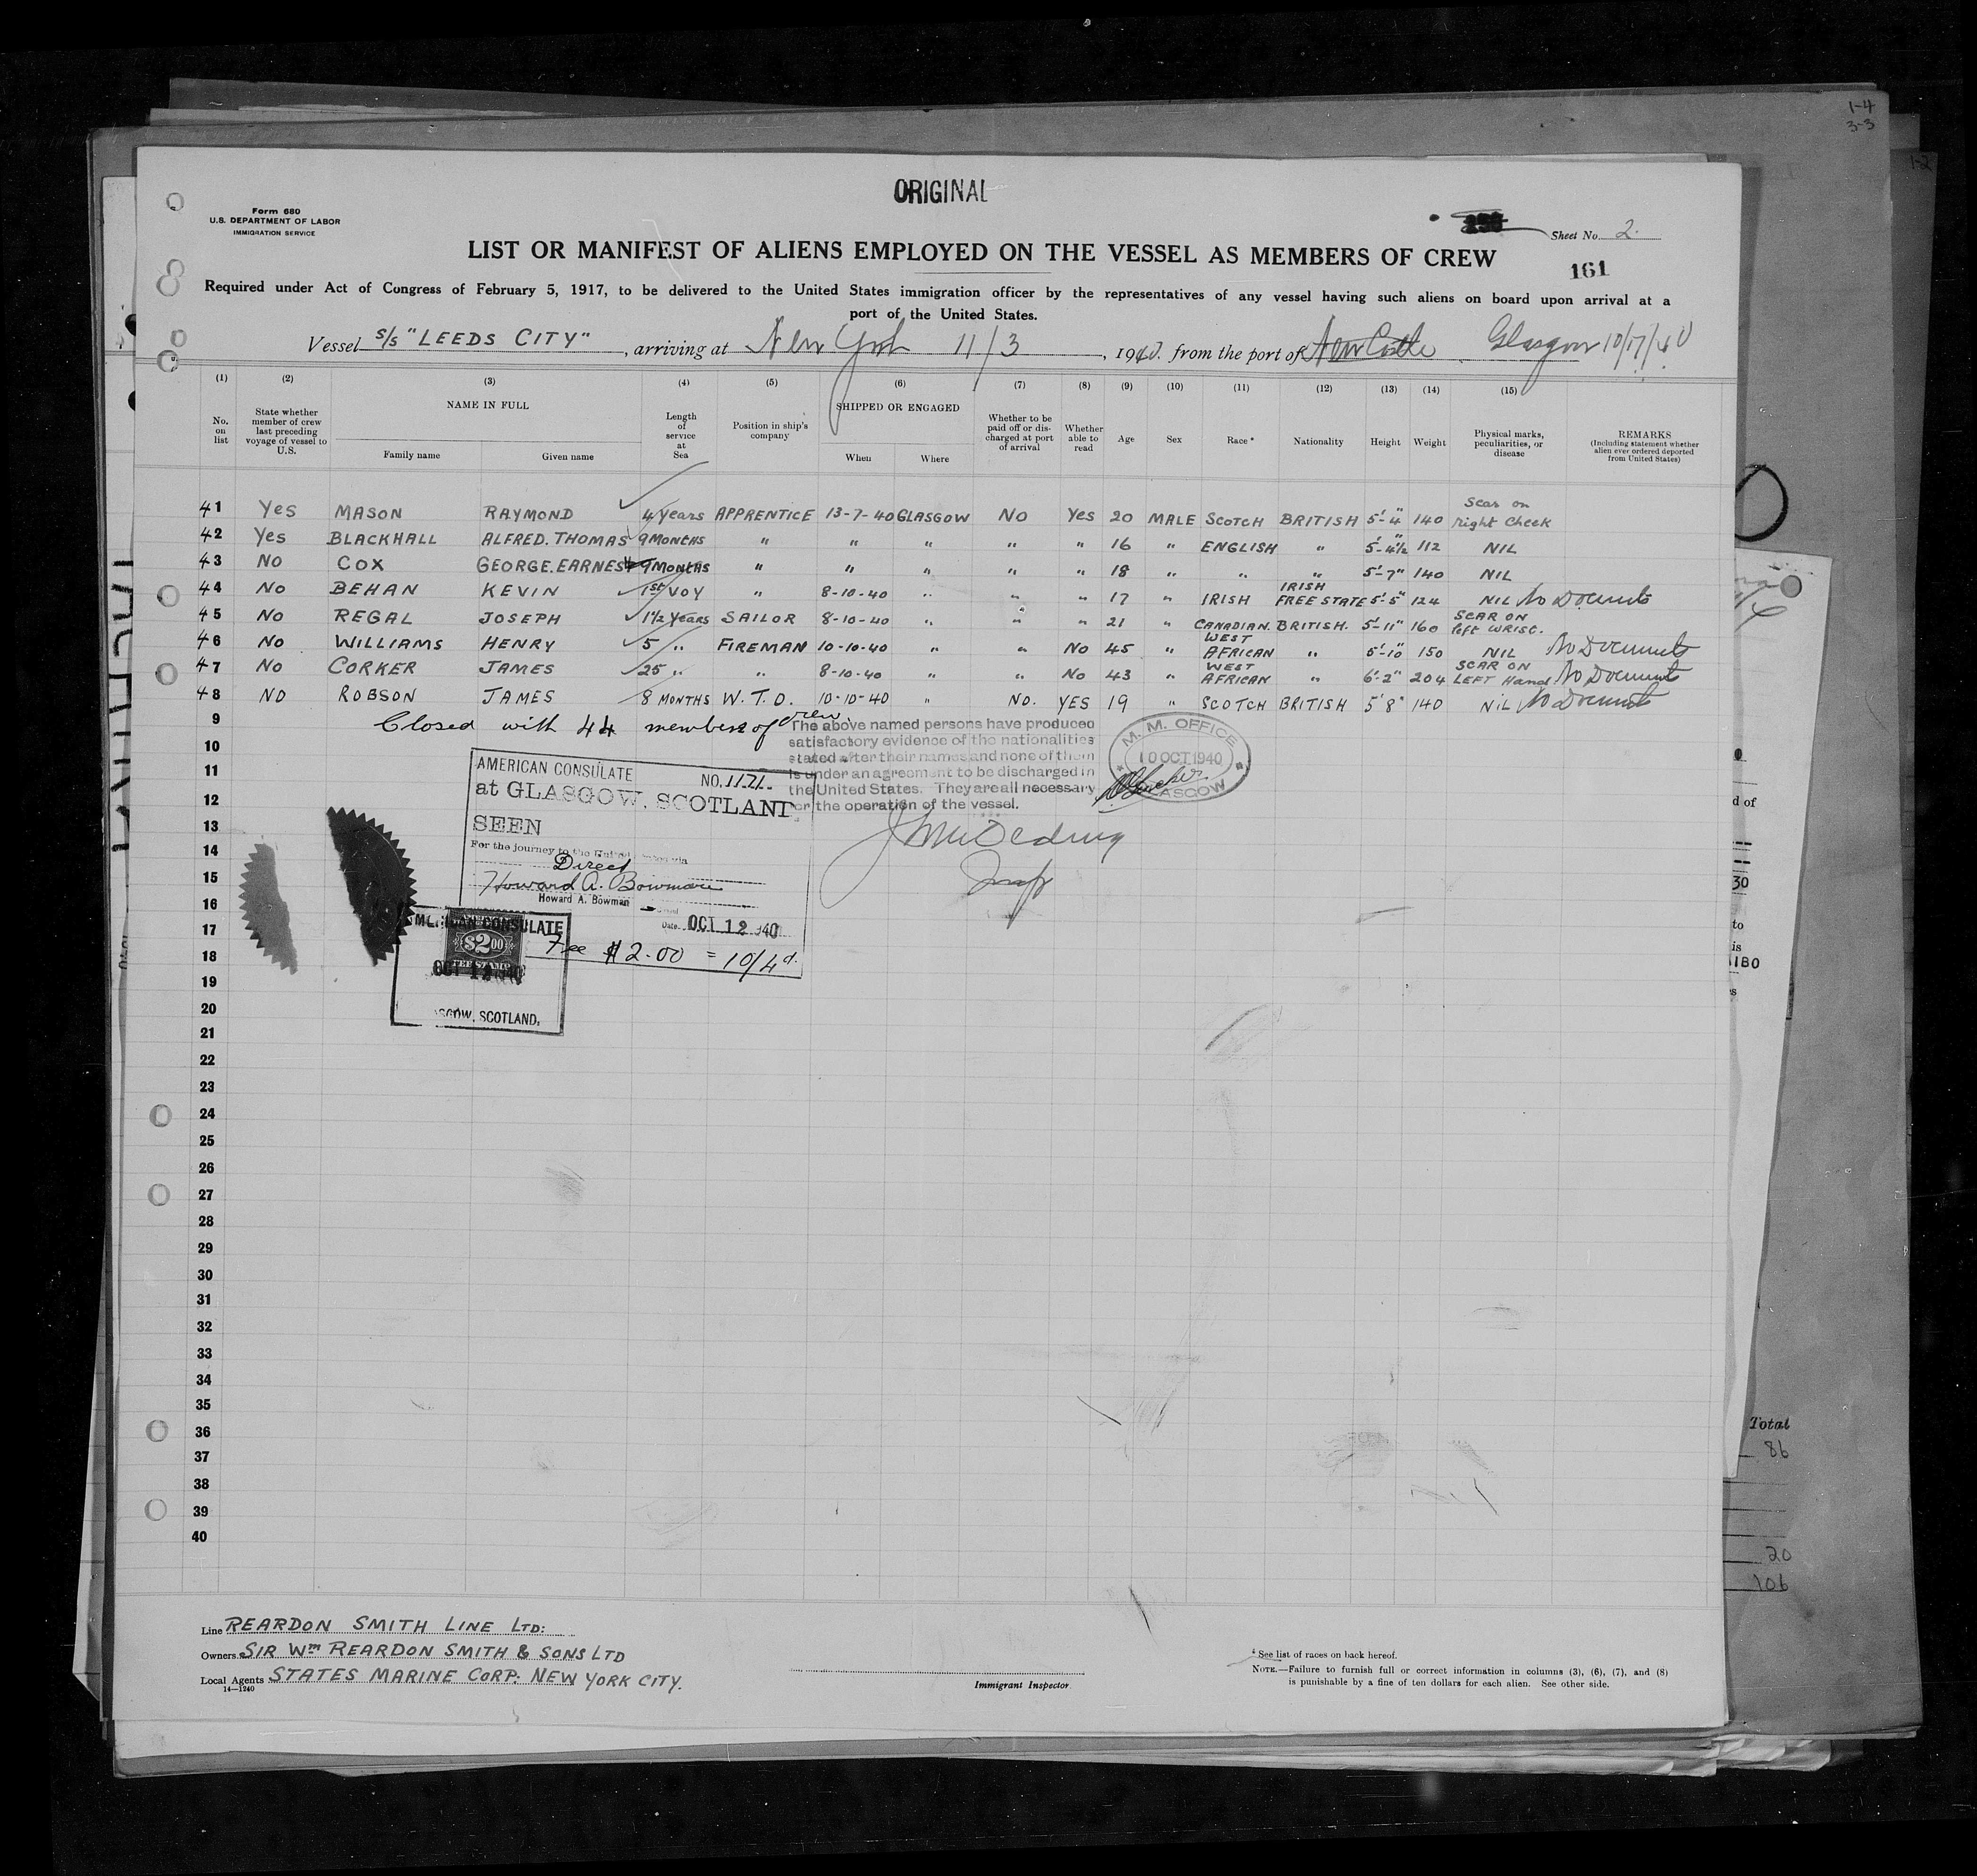 1-4
3-3
1-2
ORIGINAL
Form 680
U.S. DEPARTMENT OF LABOR
IMMIGRATION SERVICE
Sheet No. 2.
LIST OR MANIFEST OF ALIENS EMPLOYED ON THE VESSEL AS MEMBERS OF CREW
161
Required under Act of Congress of February 5, 1917, to be delivered to the United States immigration officer by the representatives of any vessel having such aliens on board upon arrival at a
port of the United States.
Vessel S/S "LEEDS CITY", arriving at New York 11/3, 1940. from the port of New Castle Glasgow 10/17/40
(1) (2) (3) (4) (5) (6) (7) (8) (9) (10) (11) (12) (13) (14) (15)
No. on list
State whether member of crew last preceding voyage of vessel to U.S.
NAME IN FULL
Family name Given name
Length of service at Sea
Position in ship's company
SHIPPED OR ENGAGED
When Where
Whether to be paid off or discharged at port of arrival
Whether able to read
Age Sex Race * Nationality Height Weight
Physical marks, peculiarities, or disease
REMARKS
(Including statement whether alien ever ordered deported from United States)
41 Yes MASON RAYMOND 4 years APPRENTICE 13-7-40 GLASGOW NO Yes 20 MALE SCOTCH BRITISH 5'-4" 140 Scar on right cheek
42 Yes BLACKHALL ALFRED. THOMAS 9 MONTHS " " " " " 16 " ENGLISH " 5'-4½" 112 NIL
43 NO COX GEORGE. EARNEST 9 MONTHS " " " " " 18 " " " 5'-7" 140 NIL
44 NO BEHAN KEVIN 1st VOY " 8-10-40 " " " 17 " IRISH IRISH FREE STATE 5'-5" 124 NIL No Documents
45 NO REGAL JOSEPH 1½ years SAILOR 8-10-40 " " " 21 " CANADIAN. BRITISH. 5'-11" 160 SCAR ON left WRIST.
46 NO WILLIAMS HENRY 5 " FIREMAN 10-10-40 " " NO 45 " WEST AFRICAN " 5'-10" 150 NIL No Documents
47 NO CORKER JAMES 25 " " 8-10-40 " " NO 43 " WEST AFRICAN " 6'-2" 204 SCAR ON LEFT Hand No Documents
48 NO ROBSON JAMES 8 MONTHS W. T. O. 10-10-40 " NO. YES 19 " SCOTCH BRITISH 5'8" 140 NIL No Documents
9 Closed with 44 members of crew.
The above named persons have produced
satisfactory evidence of the nationalities
stated after their names and none of them
is under an agreement to be discharged in
the United States. They are all necessary
for the operation of the vessel.
M. M. OFFICE
10 OCT 1940
GLASGOW
AMERICAN CONSULATE NO. 1121.
at GLASGOW, SCOTLAND
SEEN
For the journey to the United States via
Direct
Howard A. Bowman
Howard A. Bowman
Date OCT 12 1940
Fee $2.00 = 10/4d.
AMERICAN CONSULATE
$2.00
FEE STAMP
OCT 12 1940
GLASGOW, SCOTLAND,
10
11
12
13
14
15
16
17
18
19
20
21
22
23
24
25
26
27
28
29
30
31
32
33
34
35
36
37
38
39
40
d of
30
to
is
180
Total
86
20
106
Line REARDON SMITH LINE LTD:
Owners SIR Wm REARDON SMITH & SONS LTD
Local Agents STATES MARINE CORP. NEW YORK CITY.
14-1240
Immigrant Inspector
* See list of races on back hereof.
NOTE.—Failure to furnish full or correct information in columns (3), (6), (7), and (8)
is punishable by a fine of ten dollars for each alien. See other side.